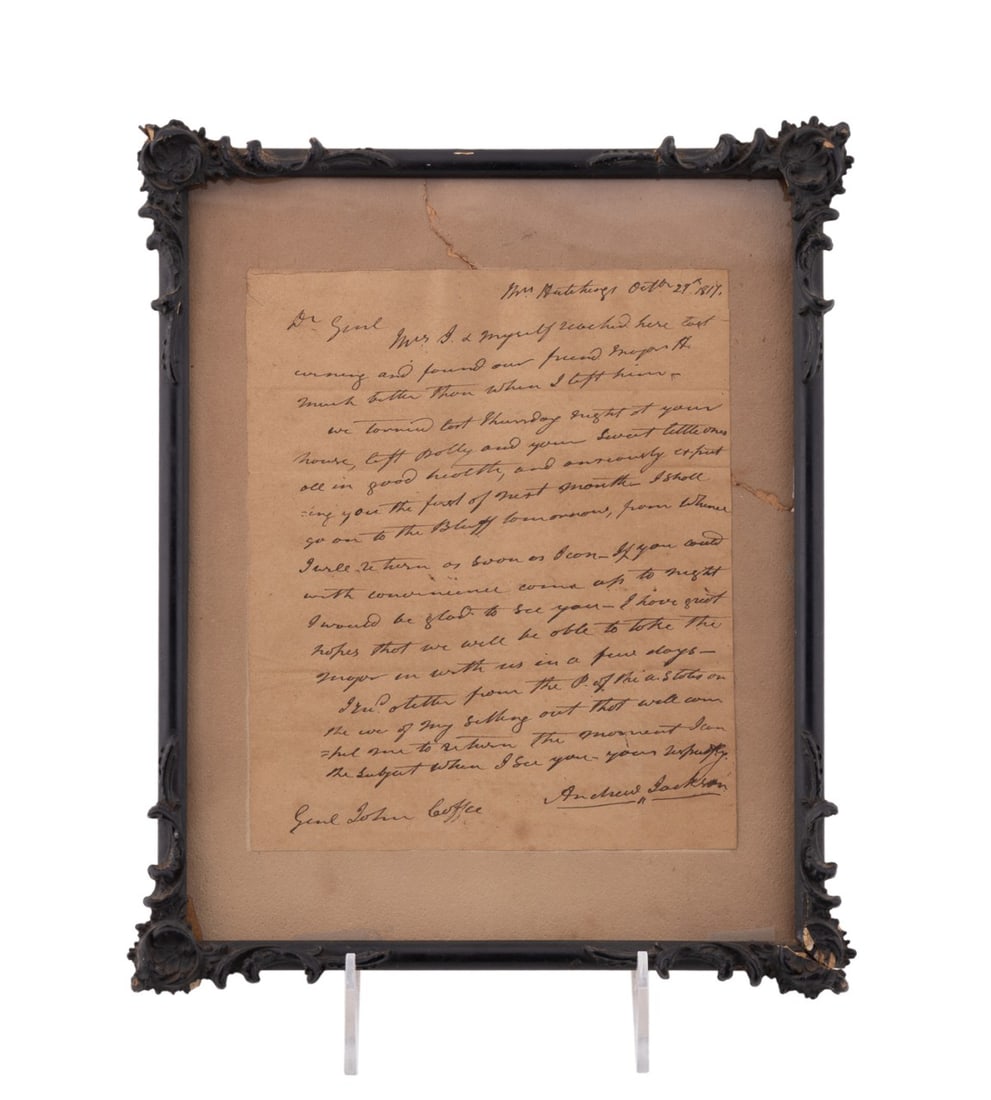 Mrs Hutchings Octbr 29th 1817.
Dr Genl Mrs J. & myself reached here last
evening and found our friend Major H.
much better than when I left him—
we tarried last thursday night at your
house, left Polly and your sweet little ones
all in good health, and anxiously expect
=ing you the first of next month— I shall
go on to the Bluff tomorrow, from whence
I will return as soon as I can— If you could
with convenience come up to night
I would be glad to see you— I have great
hopes that we will be able to take the
major in with us in a few days—
I recd a letter from the P. of the u. States on
the eve of my setting out that will com
=pel me to return the moment I can
the subject when I see you— yours respectfly
Andrew Jackson
Genl John Coffee